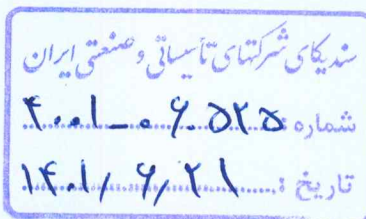 سندیکای شرکتهای تأسیساتی و صنعتی ایران
شماره: ۴۰۰۱-۰۶-۵۲۵
تاریخ: ۱۴۰۱/۶/۲۱